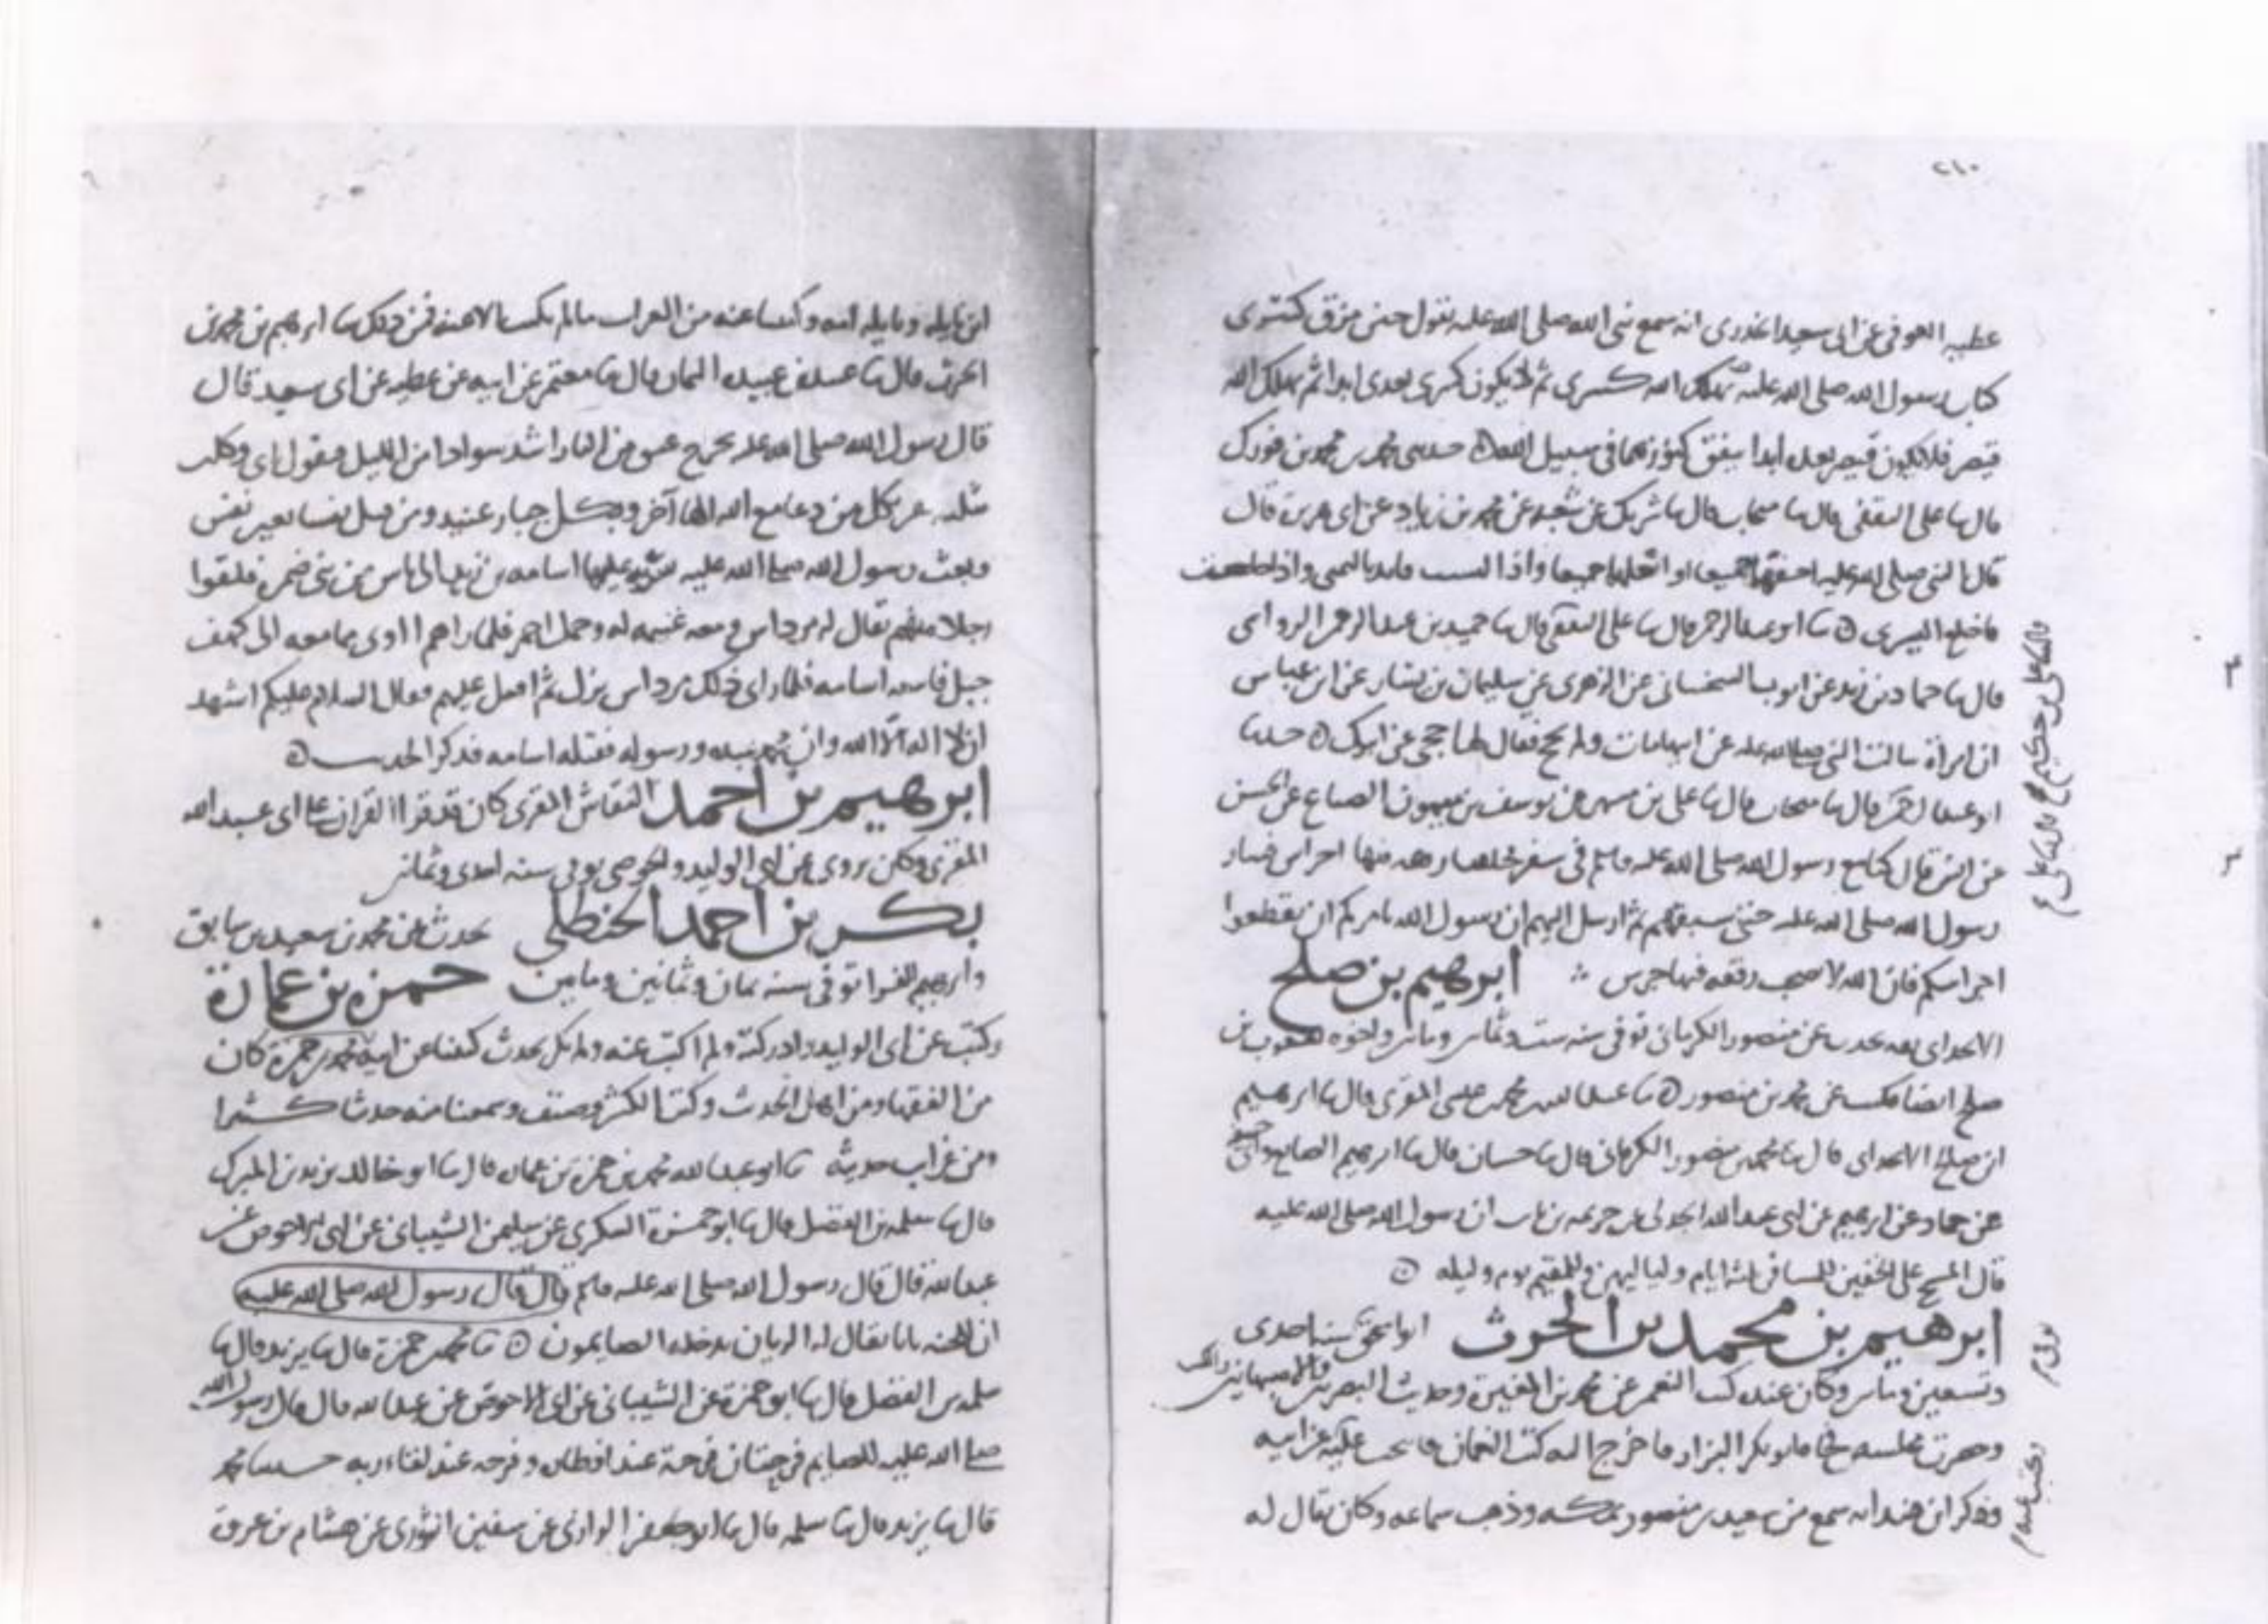 ٢١٠
عطيه العوفي عن ابي سعيد الخدري انه سمع نبي الله صلى الله عليه يقول حين مزق كسرى
كتاب رسول الله صلى الله عليه يهلك الله كسرى ثم لا يكون كسرى بعدى ابدا ثم يهلك الله
قيصر فلا يكون قيصر بعده ابدا ينفق كنوزهما في سبيل الله حدثني محمد بن محمد بن فورك
قال نا علي الثقفي قال نا منجاب قال نا شريك عن شعبه عن محمد بن زياد عن ابي هريرة قال
قال النبي صلى الله عليه احفهما جميعا او انعلهما جميعا واذا لبست فابدا باليمنى واذا خلعت
فاخلع اليسرى نا ابو عبد الرحمن قال نا علي الثقفي قال نا حميد بن عبد الرحمن الرواسي
قال نا حماد بن زيد عن ايوب السختياني عن الزهري عن سليمان بن يسار عن ابن عباس
ان امراة سالت النبي صلى الله عليه عن ابيها مات ولم يحج فقال لها حجي عن ابيك حدثنا
ابو عبد الرحمن قال نا منجاب قال نا علي بن مسهر عن يوسف بن ميمون الصباغ عن الحسن
عن انس قال كنا مع رسول الله صلى الله عليه وسلم في سفر فيها اجراس فسار
رسول الله صلى الله عليه حتى سبقهم ثم ارسل اليهم ان رسول الله يامركم ان تقطعوا
اجراسكم فان الله لا يصحب رفقه فيها جرس ابرهيم بن صلح
يحدث عن منصور الكرماني توفي سنه ست وثمانين ومائتين واخوه يعقوب بن
صلح ايضا عن محمد بن منصور نا عبد الله بن محمد بن عيسى المقرى قال نا ابرهيم
ابن صلح قال نا محمد بن منصور الكرماني قال نا حسان قال نا ابرهيم الصايغ
عن حماد عن ابرهيم عن ابي عبد الله الجدلي عن خزيمه بن ثابت ان رسول الله صلى الله عليه
قال المسح على الخفين للمسافر ثلثه ايام ولياليهن وللمقيم يوم وليله
ابرهيم بن محمد بن الحرث ابو اسحق سنه احدى
وتسعين ومائتين وكان عنده كتب النعمن عن محمد بن المغيرة وحديث البصريين والاصبهانيين
وحضرت مجلسه فجاءه ابو بكر البزار فاخرج اليه كتب النعمان فانتخب عليه عن ابيه
وذكر ابن هند انه سمع من سعيد بن منصور بمكه وذهب سماعه وكان يقال له
ابن نايله ونايله امه وكتبنا عنه من الغرايب ما لم نكتب الا عنه فمن ذلك نا ابرهيم بن محمد بن
الحرث قال نا عبيد بن عبيده التمار قال نا معتمر عن ابيه عن عطيه عن ابي سعيد قال
قال رسول الله صلى الله عليه يخرج عنق من النار اشد سوادا من الليل فيقول اني وكلت
بثلثه بكل من دعا مع الله الها آخر وبكل جبار عنيد ومن قتل نفسا بغير نفس
وبعث رسول الله صلى الله عليه سريه عليها اسامه بن زيد الى ناس من بني ضمره فلقوا
رجلا منهم يقال له مرداس ومعه غنيمه له وجمل احمر فلما راهم اوى بما معه الى كهف
جبل فاتبعه اسامه فلما راى ذلك مرداس نزل ثم اقبل عليهم فقال السلام عليكم اشهد
ان لا اله الا الله وان محمد عبده ورسوله فقتله اسامه فذكر الحديث
ابرهيم بن احمد النقاش المقرى كان قد قرا القرآن على ابي عبد الله
المقرى وكان يروي عن ابي الوليد والحوضي توفي سنه احدى وثمانين
بكر بن احمد الحنظلي يحدث عن محمد بن سعيد بن سابق
وابرهيم الفرا توفي سنه ثمان وثمانين ومايتين حمزة بن عمارة
وكتب عن ابي الوليد وادركته ولم اكتب عنه ولم يكن يحدث كتبنا عن ابنه محمد بن حمزة كان
من الفقهاء ومن اهل الحديث وكتب الكثير وصنف وسمعنا منه حديثا كثيرا
ومن غرايب حديثه نا ابو عبد الله محمد بن حمزه بن عماره قال نا ابو خالد يزيد بن المبرك
قال نا سلمه بن الفضل قال نا ابو حمزة السكري عن سليمن الشيباني عن ابي الاحوص عن
عبد الله قال قال رسول الله صلى الله عليه وسلم قال قال رسول الله صلى الله عليه
ان للجنه بابا يقال له الريان يدخله الصايمون نا محمد بن حمزة قال نا يزيد قال نا
سلمه بن الفضل قال نا ابو حمزة عن الشيباني عن ابي الاحوص عن عبد الله قال قال رسول الله
صلى الله عليه للصايم فرحتان فرحة عند افطاره وفرحه عند لقاء ربه حدثنا محمد
قال نا يزيد قال نا سلمه قال نا ابو جعفر الرازي عن سفين الثوري عن هشام بن عروة